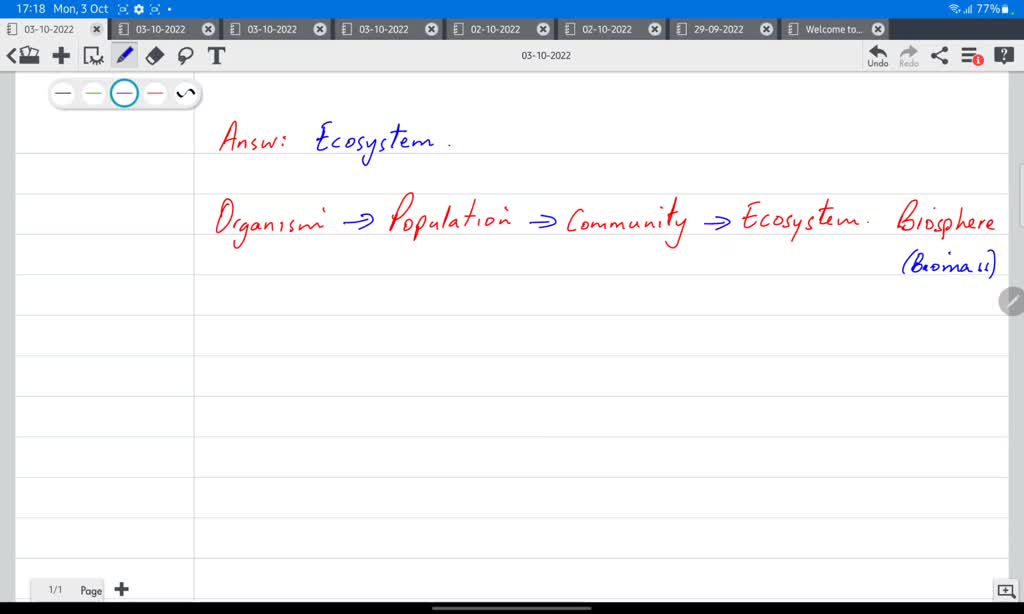 17:18 Mon, 3 Oct 77%
03-10-2022 03-10-2022 03-10-2022 03-10-2022 02-10-2022 02-10-2022 29-09-2022 Welcome to...
T 03-10-2022 Undo Redo 1 ?
Answ: Ecosystem.
Organism → Population → Community → Ecosystem. Biosphere
(Biomass)
1/1 Page